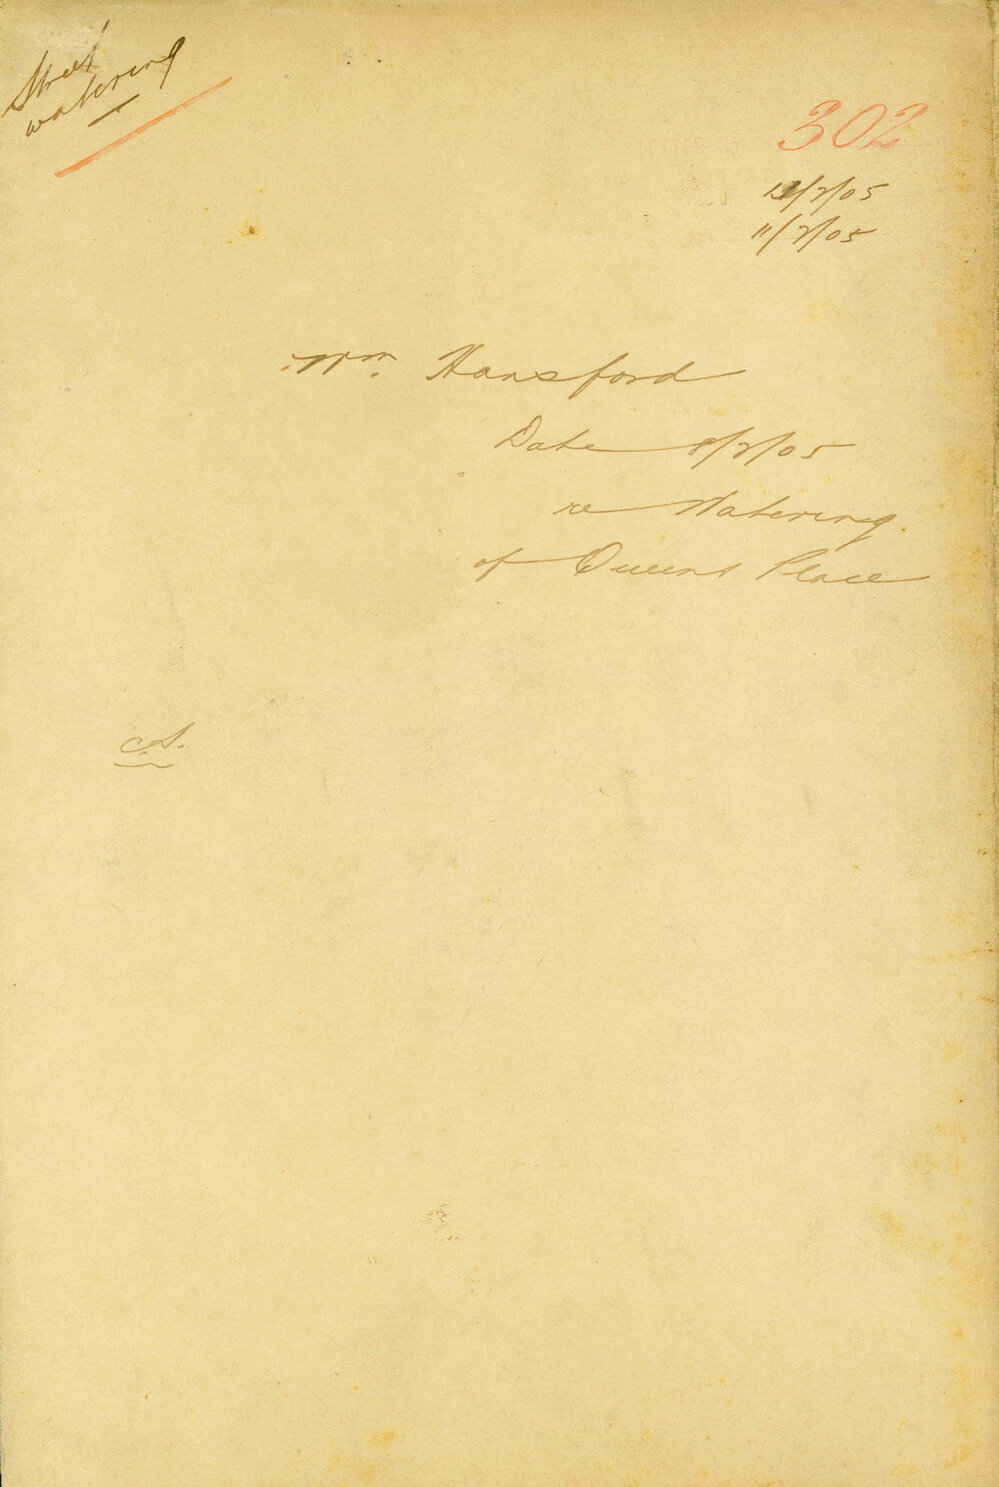 Street
watering
302
12/2/05
11/2/05
Wm. Hansford
Date 8/2/05
re Watering
of Queens Place